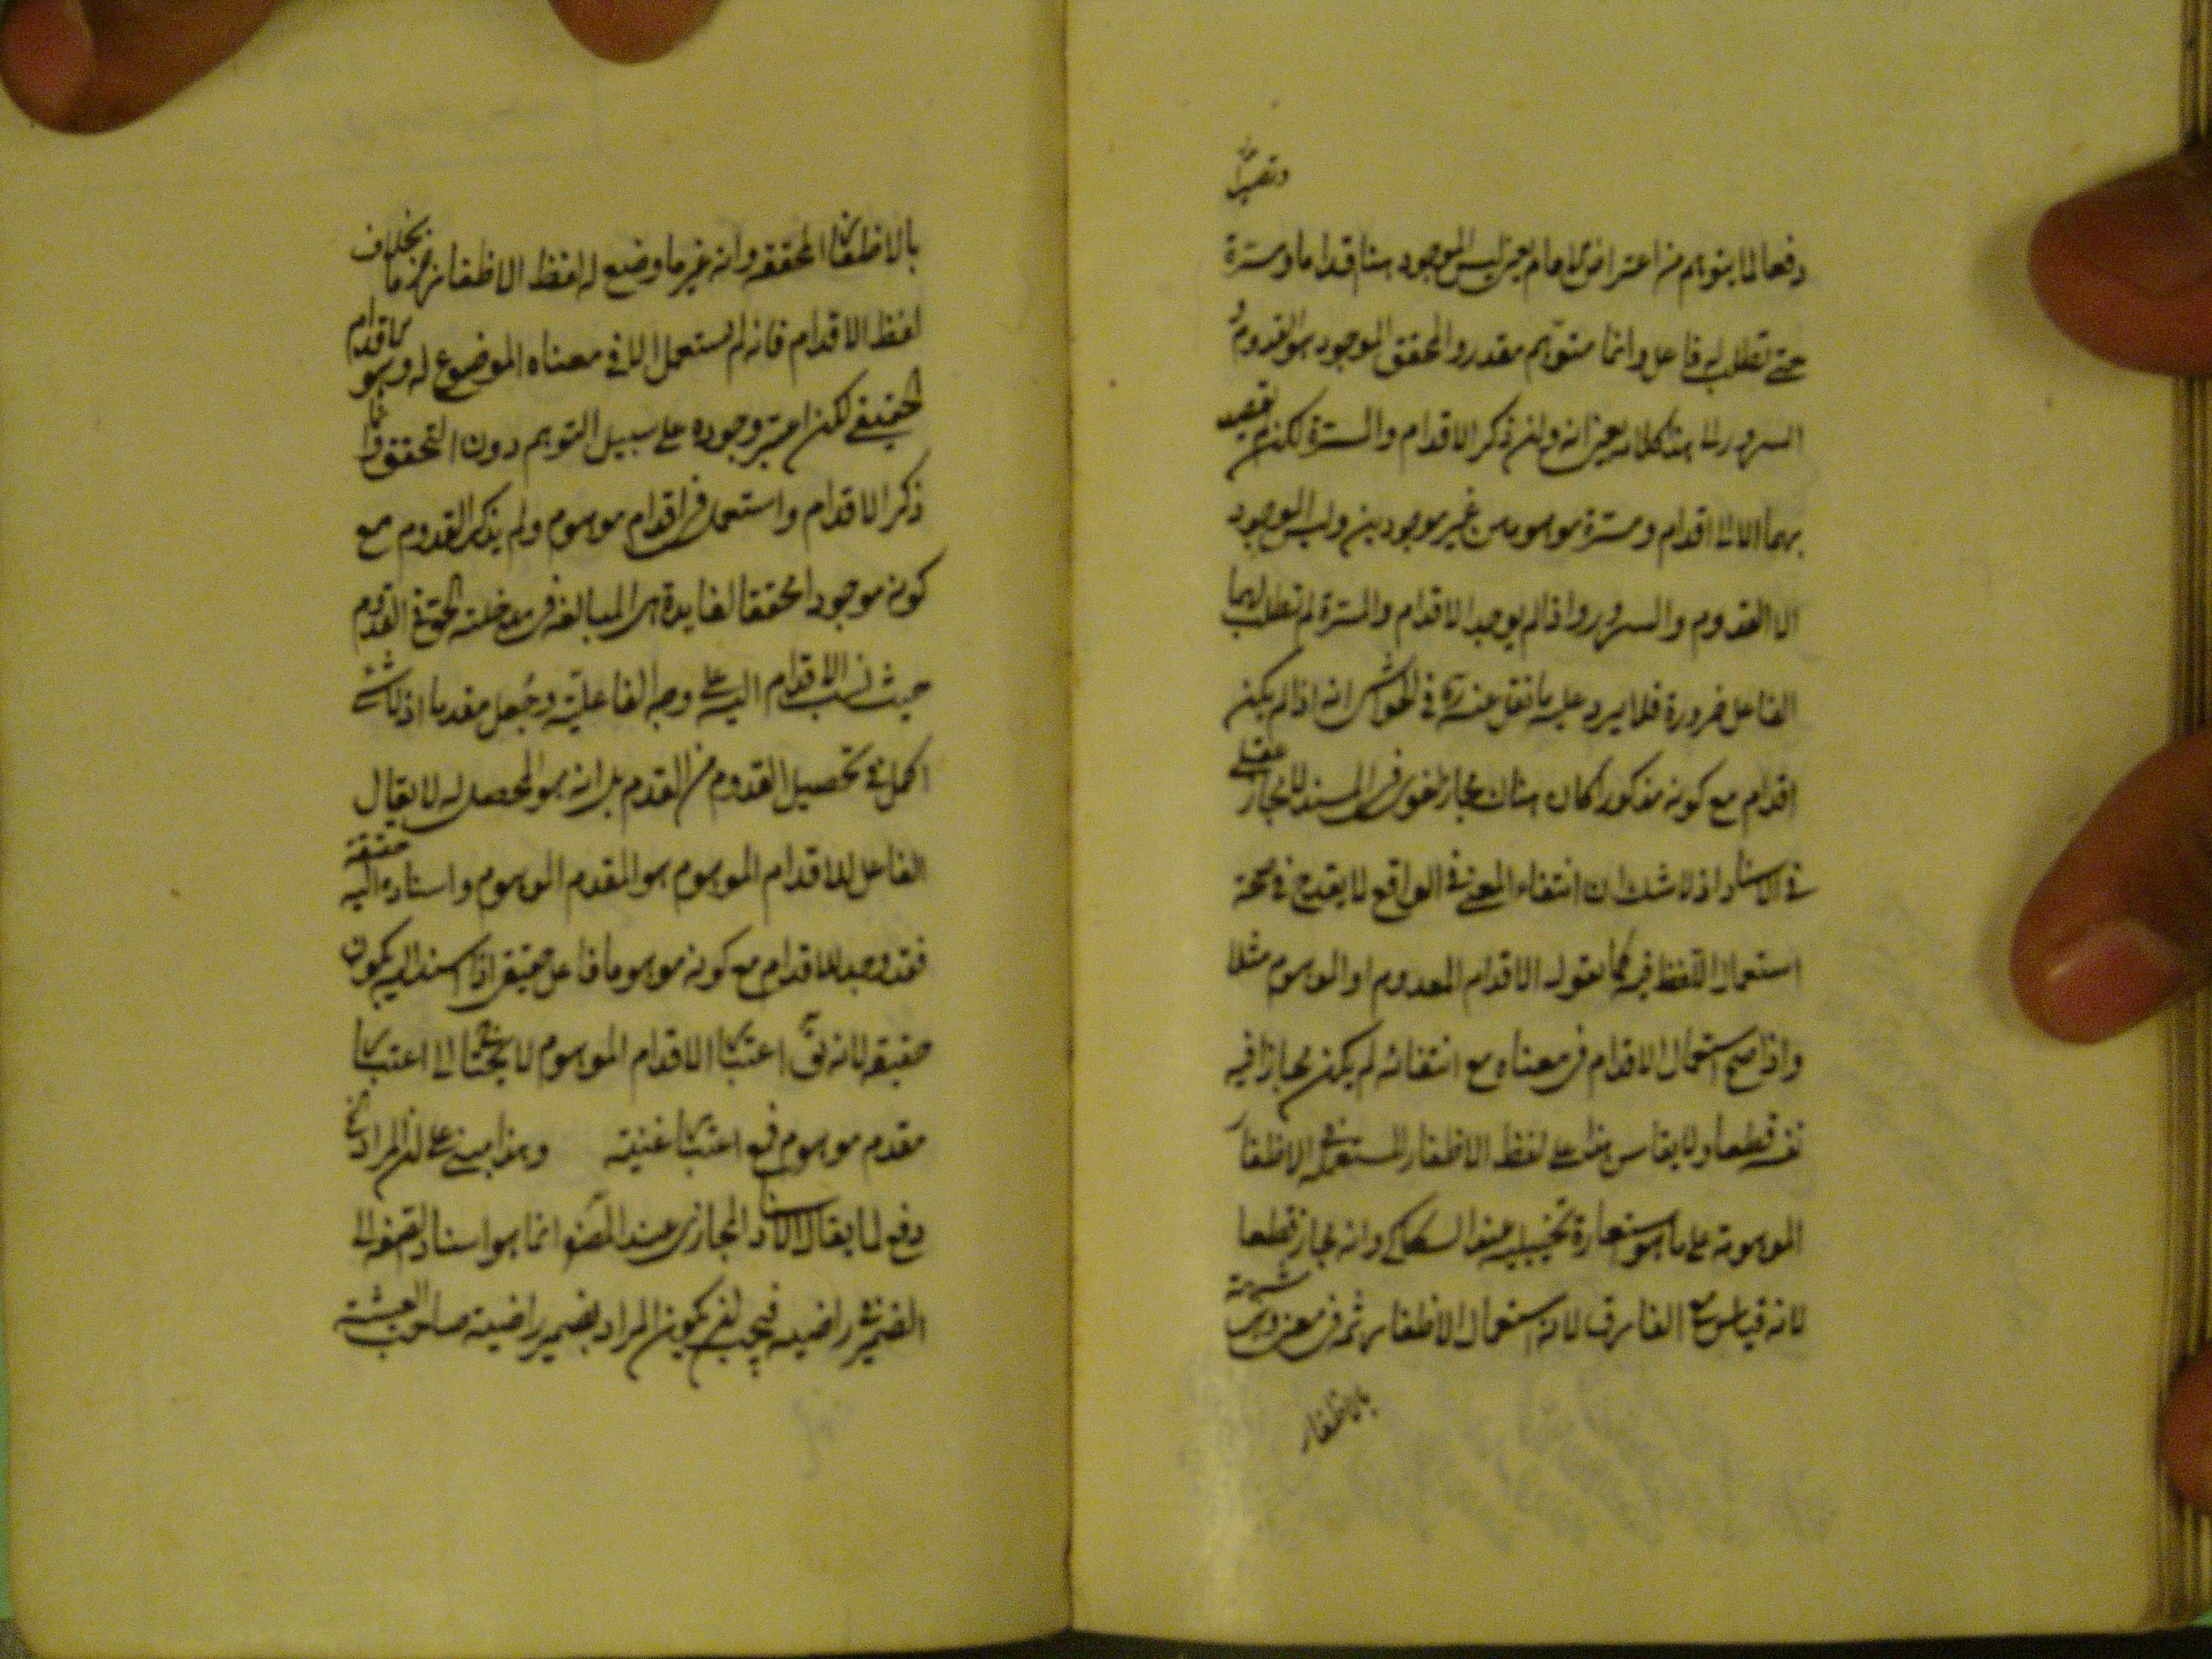 دفعا لما يتوهم من اعتراض الامام يعني ليس الموجود هنا قداما ومسرة
حتى تطلب له فاعل وانما متوهم مقدر والمحقق الموجود هو القدوم و
السرور الى هذا كلامه يعني انه وان ذكر الاقدام والمسرة لكن لم يقصد
بهما الا اقدام ومسرة موهومان غير موجودين وليس الموجود
الا القدوم والسرور واذا لم يوجد الاقدام والمسرة لم تطلب لهما
الفاعل ضرورة فلا يرد عليه ما نقل عنه في الحواشى انه اذا لم يكن
اقدام مع كونه مذكورا كان هناك مجاز لغوى في المسند لا مجاز عقلي
في الاسناد اذ لا شك ان انتفاء المعنى في الواقع لا يقدح في صحة
استعمال اللفظ فيه كما تقول الاقدام المعدوم او الموهوم مثلا
واذا صح استعمال الاقدام في معناه مع انتفائه لم يكن مجازا فيه
نفسه قطعا ولا يقاس هذا على لفظ الاظفار المستعمل في الاظفار
الموهومة على ما هو استعارة تخييلية عند السكاكى وانه مجاز قطعا
لانه قياس مع الفارق لانه استعمال الاظفار ثمه في معنى وهمى شبيهة
بالاظفار
بالاظفار المحققة وانه غير ما وضع له لفظ الاظفار بخلاف
لفظ الاقدام فانه لم يستعمل الا في معناه الموضوع له وهو الاقدام
الحقيقى لكن اعتبر وجوده على سبيل التوهم دون التحقق وانما
ذكر الاقدام واستعمل في اقدام موهوم ولم يذكر القدوم مع
كونه موجودا محققا لفايدة هى المبالغة في مدخلية الحق في القدوم
حيث نسب الاقدام اليه على وجه الفاعلية وجعل مقدما اذ لا شئ
اكمل في تحصيل القدوم من المقدم بل انه هو المحصل له لا يقال
الفاعل للاقدام الموهوم هو المقدم الموهوم واسناده اليه حقيقة
فقد وجد للاقدام مع كونه موهوما فاعل حقيقى اذا اسند اليه يكون
حقيقة لانه نق اعتبار الاقدام الموهوم لا يحتاج الى اعتبار
مقدم موهوم ففى اعتباره غنية وهذا مبنى على ان المراد
دفع لما يقال الاسناد المجازى عند المص انما هو اسناد الفعل الى
الضمير في راضية فيجب ان يكون المراد بضمير راضية صاحب العيشة